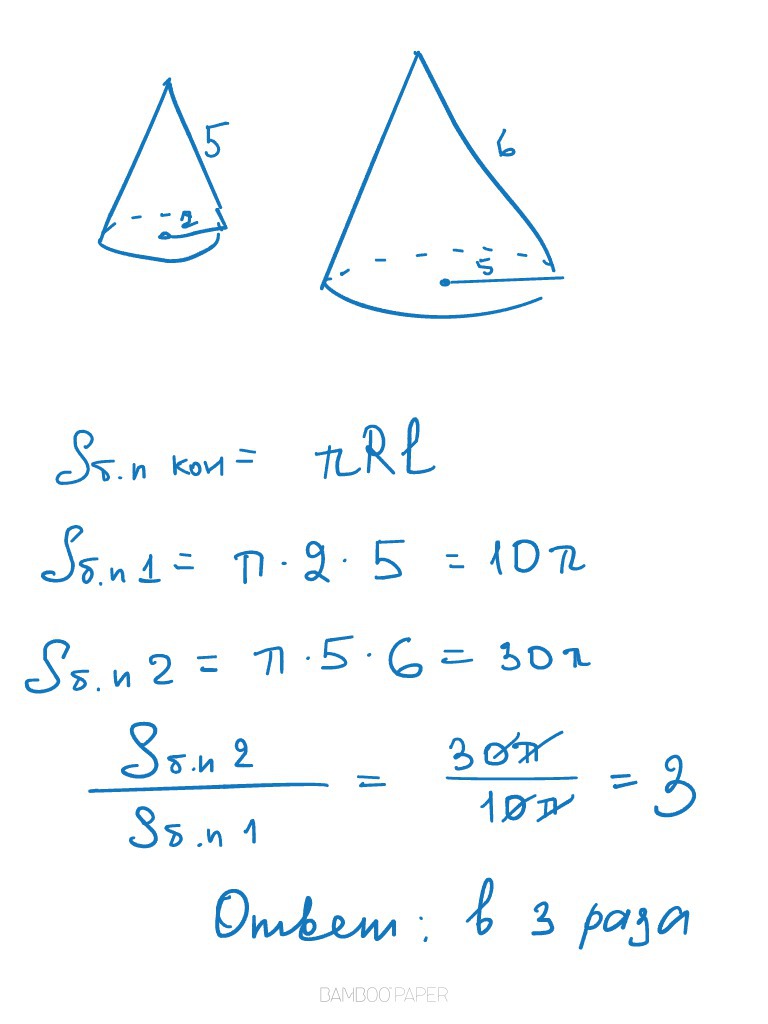 5
6
2
5
Sб.п кон = πRl
Sб.п 1 = π · 2 · 5 = 10π
Sб.п 2 = π · 5 · 6 = 30π
Sб.п 2 / Sб.п 1 = 30π / 10π = 3
Ответ: в 3 раза
BAMBOO PAPER